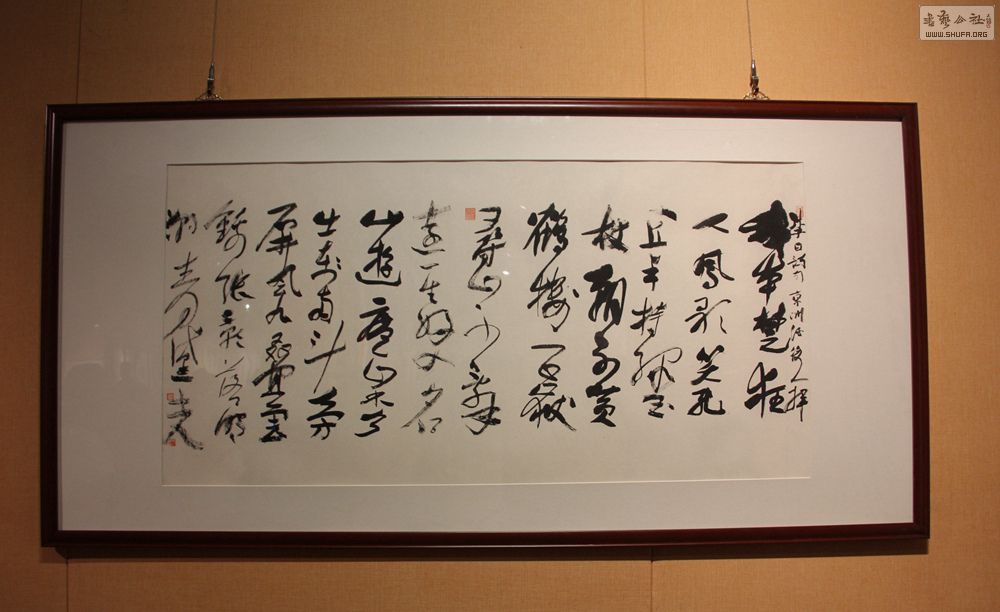 李白詩句
我本楚狂
人鳳歌笑孔
丘手持綠玉
杖朝別黃
鶴樓五嶽
尋仙不辭
遠一生好入名
山遊廬山秀
出南斗旁
屏風九疊雲
錦張影落明
湖青黛光
書藝公社
WWW.SHUFA.ORG